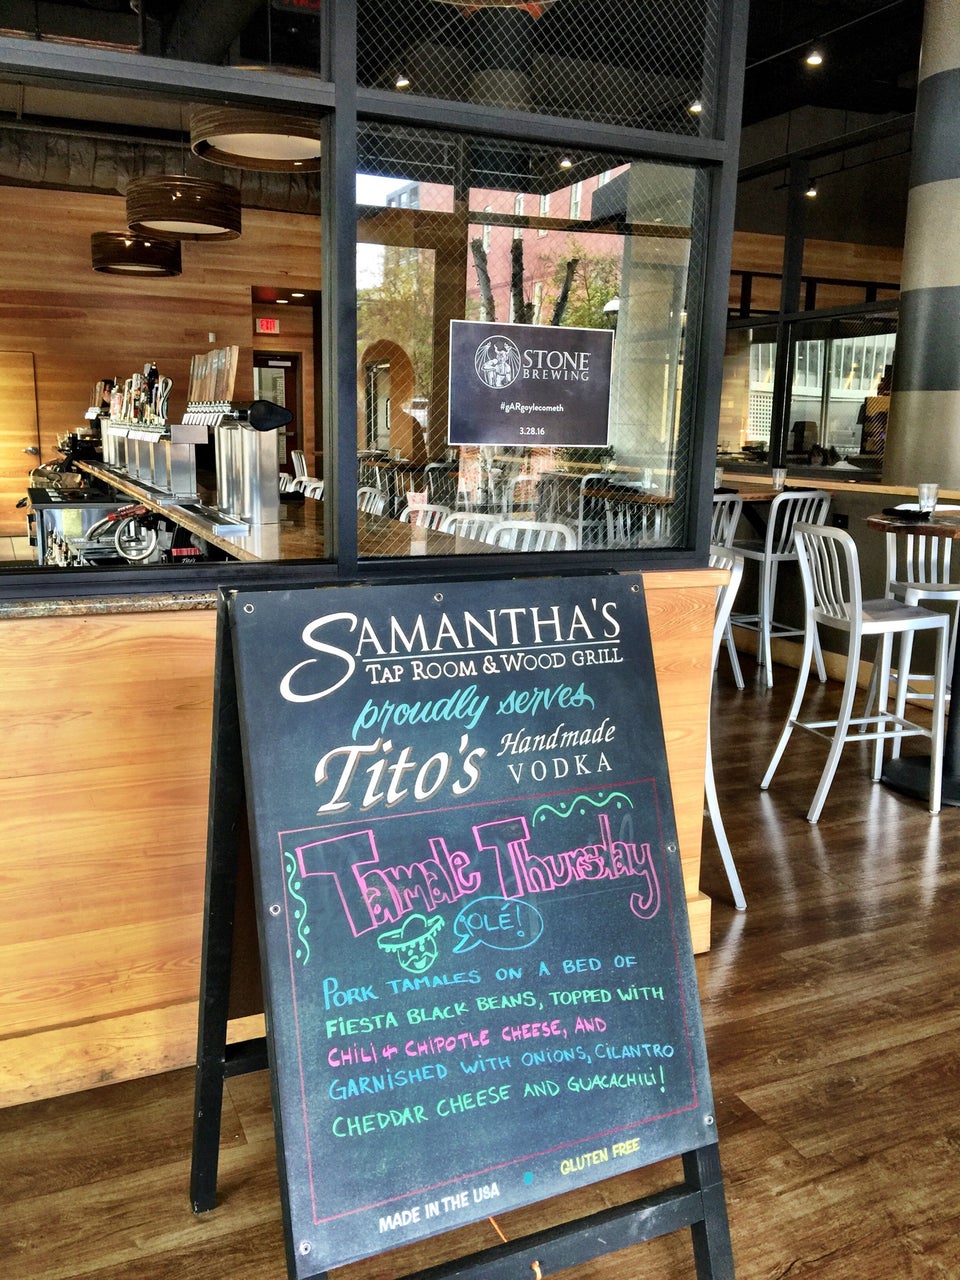 EXIT
STONE
BREWING
#gARgoylecometh
3.28.16
SAMANTHA'S
TAP ROOM & WOOD GRILL
proudly serves
Tito's Handmade
VODKA
Tamale Thursday
OLÉ!
PORK TAMALES ON A BED OF
FIESTA BLACK BEANS, TOPPED WITH
CHILI & CHIPOTLE CHEESE, AND
GARNISHED WITH ONIONS, CILANTRO
CHEDDAR CHEESE AND GUACACHILI!
MADE IN THE USA GLUTEN FREE